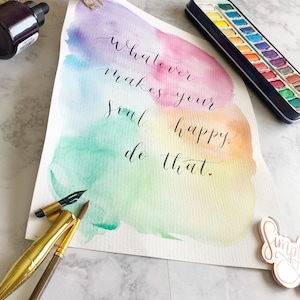 Whatever
makes your
soul happy,
do that.
Simply